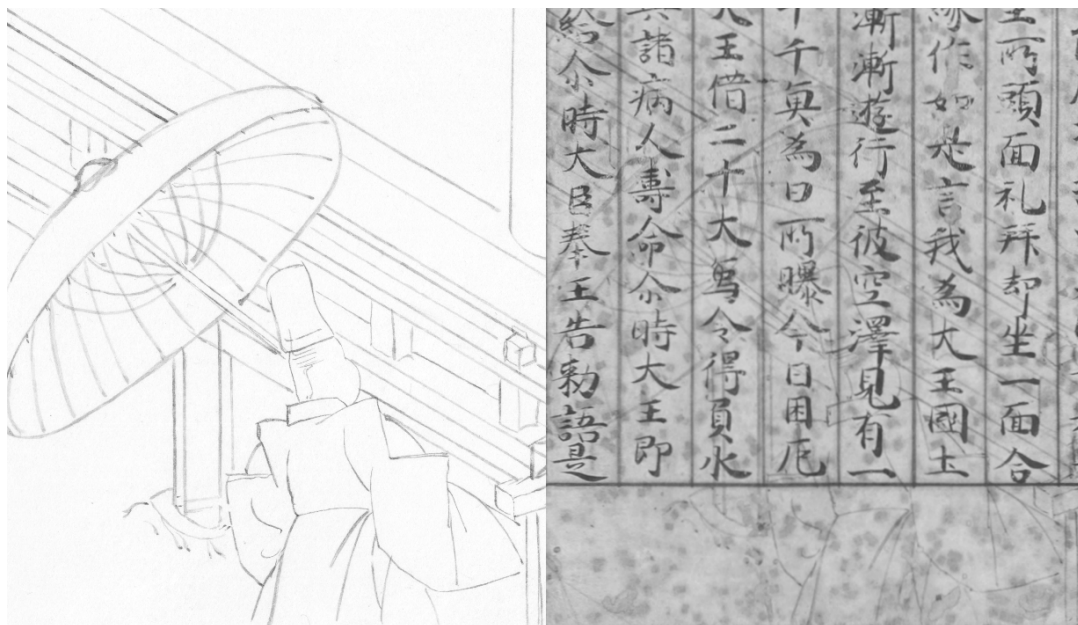 王所頭面礼拜却坐一面合
緣作如是言我為大王國土
漸漸遊行至彼空澤見有一
十千魚為日所曝今日困厄
大王借二十大象令得負水
與諸病人壽命尒時大王即
給尒時大臣奉王告勑語是